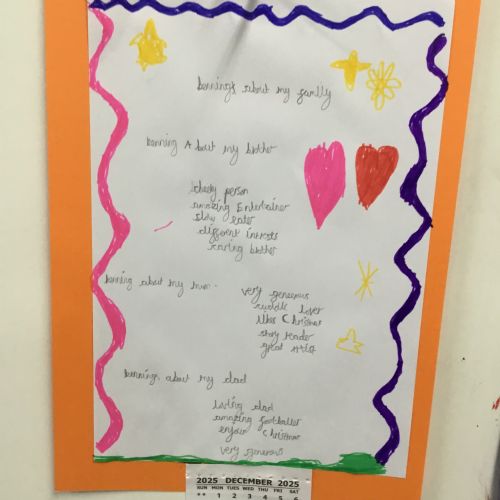 kennings about my family
kenning About my brother
cheeky person
amazing Entertainer
slow eater
different intrests
caring brother
kenning about my mum.
very generous
cuddle lover
likes Christmas
story reader
great artist
kennings about my dad
loving dad
amazing footballer
enjoys Christmas
very generous
2025 DECEMBER 2025
SUN MON TUES WED THU FRI SAT
** 1 2 3 4 5 6